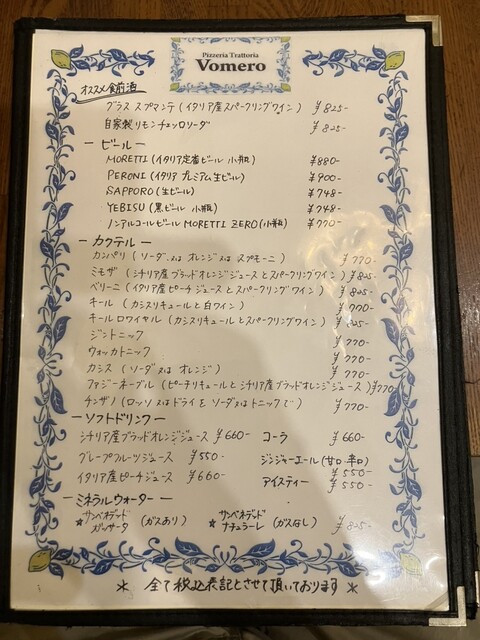 Pizzeria Trattoria
Vomero
オススメ食前酒
グラス スプマンテ (イタリア産スパークリングワイン) ¥825-
自家製リモンチェッロソーダ ¥825-
ー ビール ー
MORETTI (イタリア定番ビール 小瓶) ¥880-
PERONI (イタリア プレミアム生ビール) ¥900-
SAPPORO (生ビール) ¥748-
YEBISU (黒ビール 小瓶) ¥748-
ノンアルコールビール MORETTI ZERO (小瓶) ¥770-
ー カクテル ー
カンパリ (ソーダ 又は オレンジ 又は スプモーニ) ¥770-
ミモザ (シチリア産ブラッドオレンジジュースとスパークリングワイン) ¥825-
ベリーニ (イタリア産ピーチジュースとスパークリングワイン) ¥825-
キール (カシスリキュールと白ワイン) ¥770-
キールロワイヤル (カシスリキュールとスパークリングワイン) ¥825-
ジントニック ¥770-
ウォッカトニック ¥770-
カシス (ソーダ 又は オレンジ) ¥770-
ファジーネーブル (ピーチリキュールとシチリア産ブラッドオレンジジュース) ¥770-
チンザノ (ロッソ 又は ドライを ソーダ 又は トニックで) ¥770-
ー ソフトドリンク ー
シチリア産ブラッドオレンジジュース ¥660- コーラ ¥660-
グレープフルーツジュース ¥550- ジンジャーエール (甘口・辛口) ¥550-
イタリア産ピーチジュース ¥660- アイスティー ¥550-
ー ミネラルウォーター ー
★ サンベネデッド メッザータ (ガスあり) ★ サンベネデッド ナチュラーレ (ガスなし) ¥825-
* 全て税込表記とさせて頂いております *